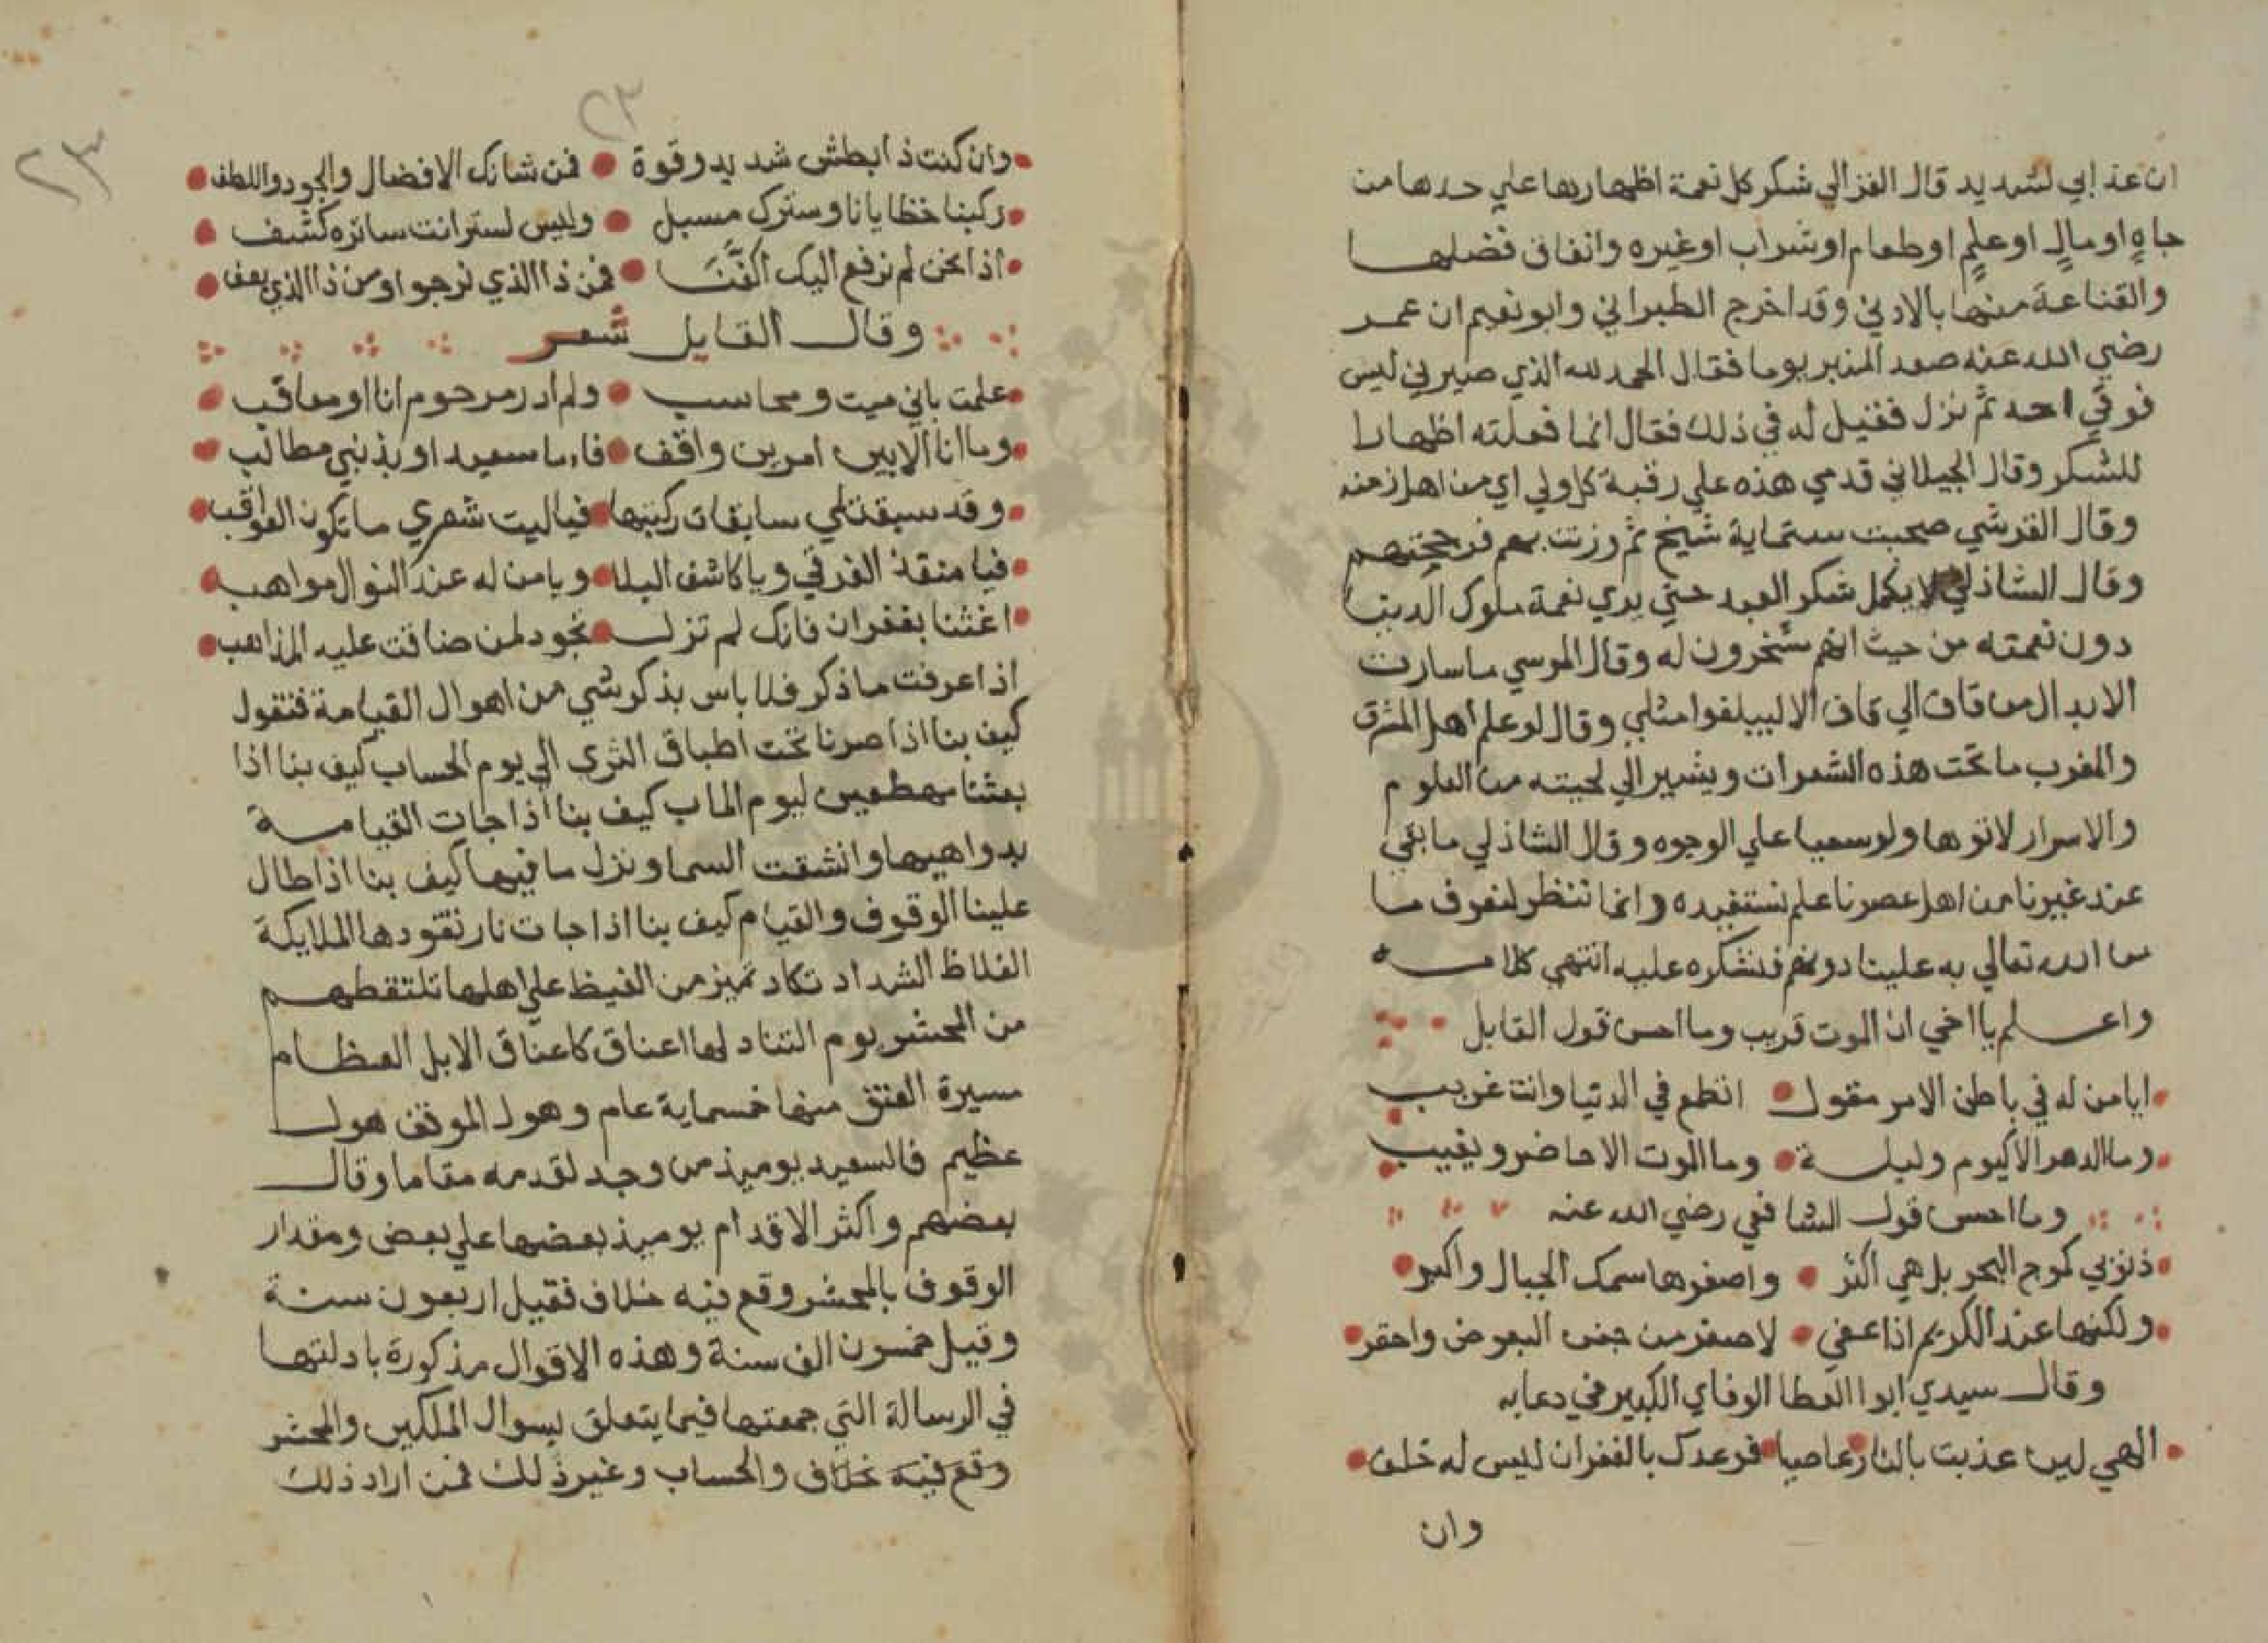 ان عذابي لشديد قال الغزالي شكر كل نعمة اظهارها علي حدها من
جاهٍ او مالٍ او علمٍ او طعام او شراب او غيره وانفاق فضلها
والقناعة منها بالادني وقد اخرج الطبراني وابو نعيم ان عمر
رضي الله عنه صعد المنبر يوما فقال الحمد لله الذي صيرني ليس
فوقي احد ثم نزل فقيل له في ذلك فقال انما فعلته اظهارا
للشكر وقال الجيلاني قدمي هذه علي رقبة كل ولي اي من اهل زمنه
وقال القرشي صحبت ستماية شيخ ثم وزنت بهم فرجحتهم
وقال الشاذلي لا يكمل شكر العبد حتي يري نعمة ملوك الدنيا
دون نعمته من حيث انهم مسخرون له وقال المرسي ما سارت
الابدال من قاف الي قاف الا ليلقوا مثلي وقال لو علم اهل المشرق
والمغرب ما تحت هذه الشعرات ويشير الي لحيته من العلوم
والاسرار لاتوها ولو سعيا علي الوجوه وقال الشاذلي ما بقي
عند غيرنا من اهل عصرنا علم نستفيده وانما ننظر لنعرف ما
من الله تعالي به علينا دونهم فنشكره عليه انتهي كلامه
واعلم يا اخي ان الموت قريب وما احسن قول القايل
ايا من له في باطن الامر مقول انطمع في الدنيا وانت غريب
وما الدهر الا كيوم وليلة وما الموت الا حاضر ويغيب
وما احسن قول الشافعي رضي الله عنه
ذنوبي كموج البحر بل هي اكثر واصغرها سمك الجبال واكبر
ولكنها عند الكريم اذا عفي لاصغر من جنح البعوض واحقر
وقال سيدي ابوا العطا الوفاي الكبير في دعايه
الهي لين عذبت بالنار عاصيا فوعدك بالغفران ليس له خلف
وان
٢٣
٢٣
وان كنت ذا بطش شديد وقوة فمن شانك الافضال والجود واللطف
ركبنا خطايانا وسترك مسبل وليس لستر انت ساتره كشف
اذا نحن لم نرفع اليك اكفنا فمن ذا الذي نرجوا ومن ذا الذي يعف
وقال القايل شعر
علمت باني ميت ومحاسب ولم ادر مرحوم انا او معاقب
وما انا الا بين امرين واقف فاما سعيد او بذنبي مطالب
وقد سبقت لي سابقات ركبتها فيا ليت شعري ما تكون العواقب
فيا منقذ الغرقي ويا كاشف البلا ويا من له عند النوال مواهب
اغثنا بغفران فانك لم تزل تجود لمن ضاقت عليه المذاهب
اذا عرفت ما ذكر فلا باس بذكر شي من اهوال القيامة فنقول
كيف بنا اذا صرنا تحت اطباق الثري الي يوم الحساب كيف بنا اذا
بعثنا مهطعين ليوم الماب كيف بنا اذا جات القيامة
بدواهيها وانشقت السما ونزل ما فيها كيف بنا اذا طال
علينا الوقوف والقيام كيف بنا اذا جات نار تقودها الملايكة
الغلاظ الشداد تكاد تميز من الغيظ علي اهلها تلتقطهم
من المحشر يوم التناد لها اعناق كاعناق الابل العظام
مسيرة العنق منها خمسماية عام وهول الموقف هول
عظيم فالسعيد يوميذ من وجد لقدمه مقاما وقال
بعضهم واكثر الاقدام يوميذ بعضها علي بعض ومقدار
الوقوف بالمحشر وقع فيه خلاف فقيل اربعون سنة
وقيل خمسون الف سنة وهذه الاقوال مذكورة بادلتها
في الرسالة التي جمعتها فيما يتعلق بسوال الملكين والمحشر
وقع فيه خلاف والحساب وغير ذلك فمن اراد ذلك